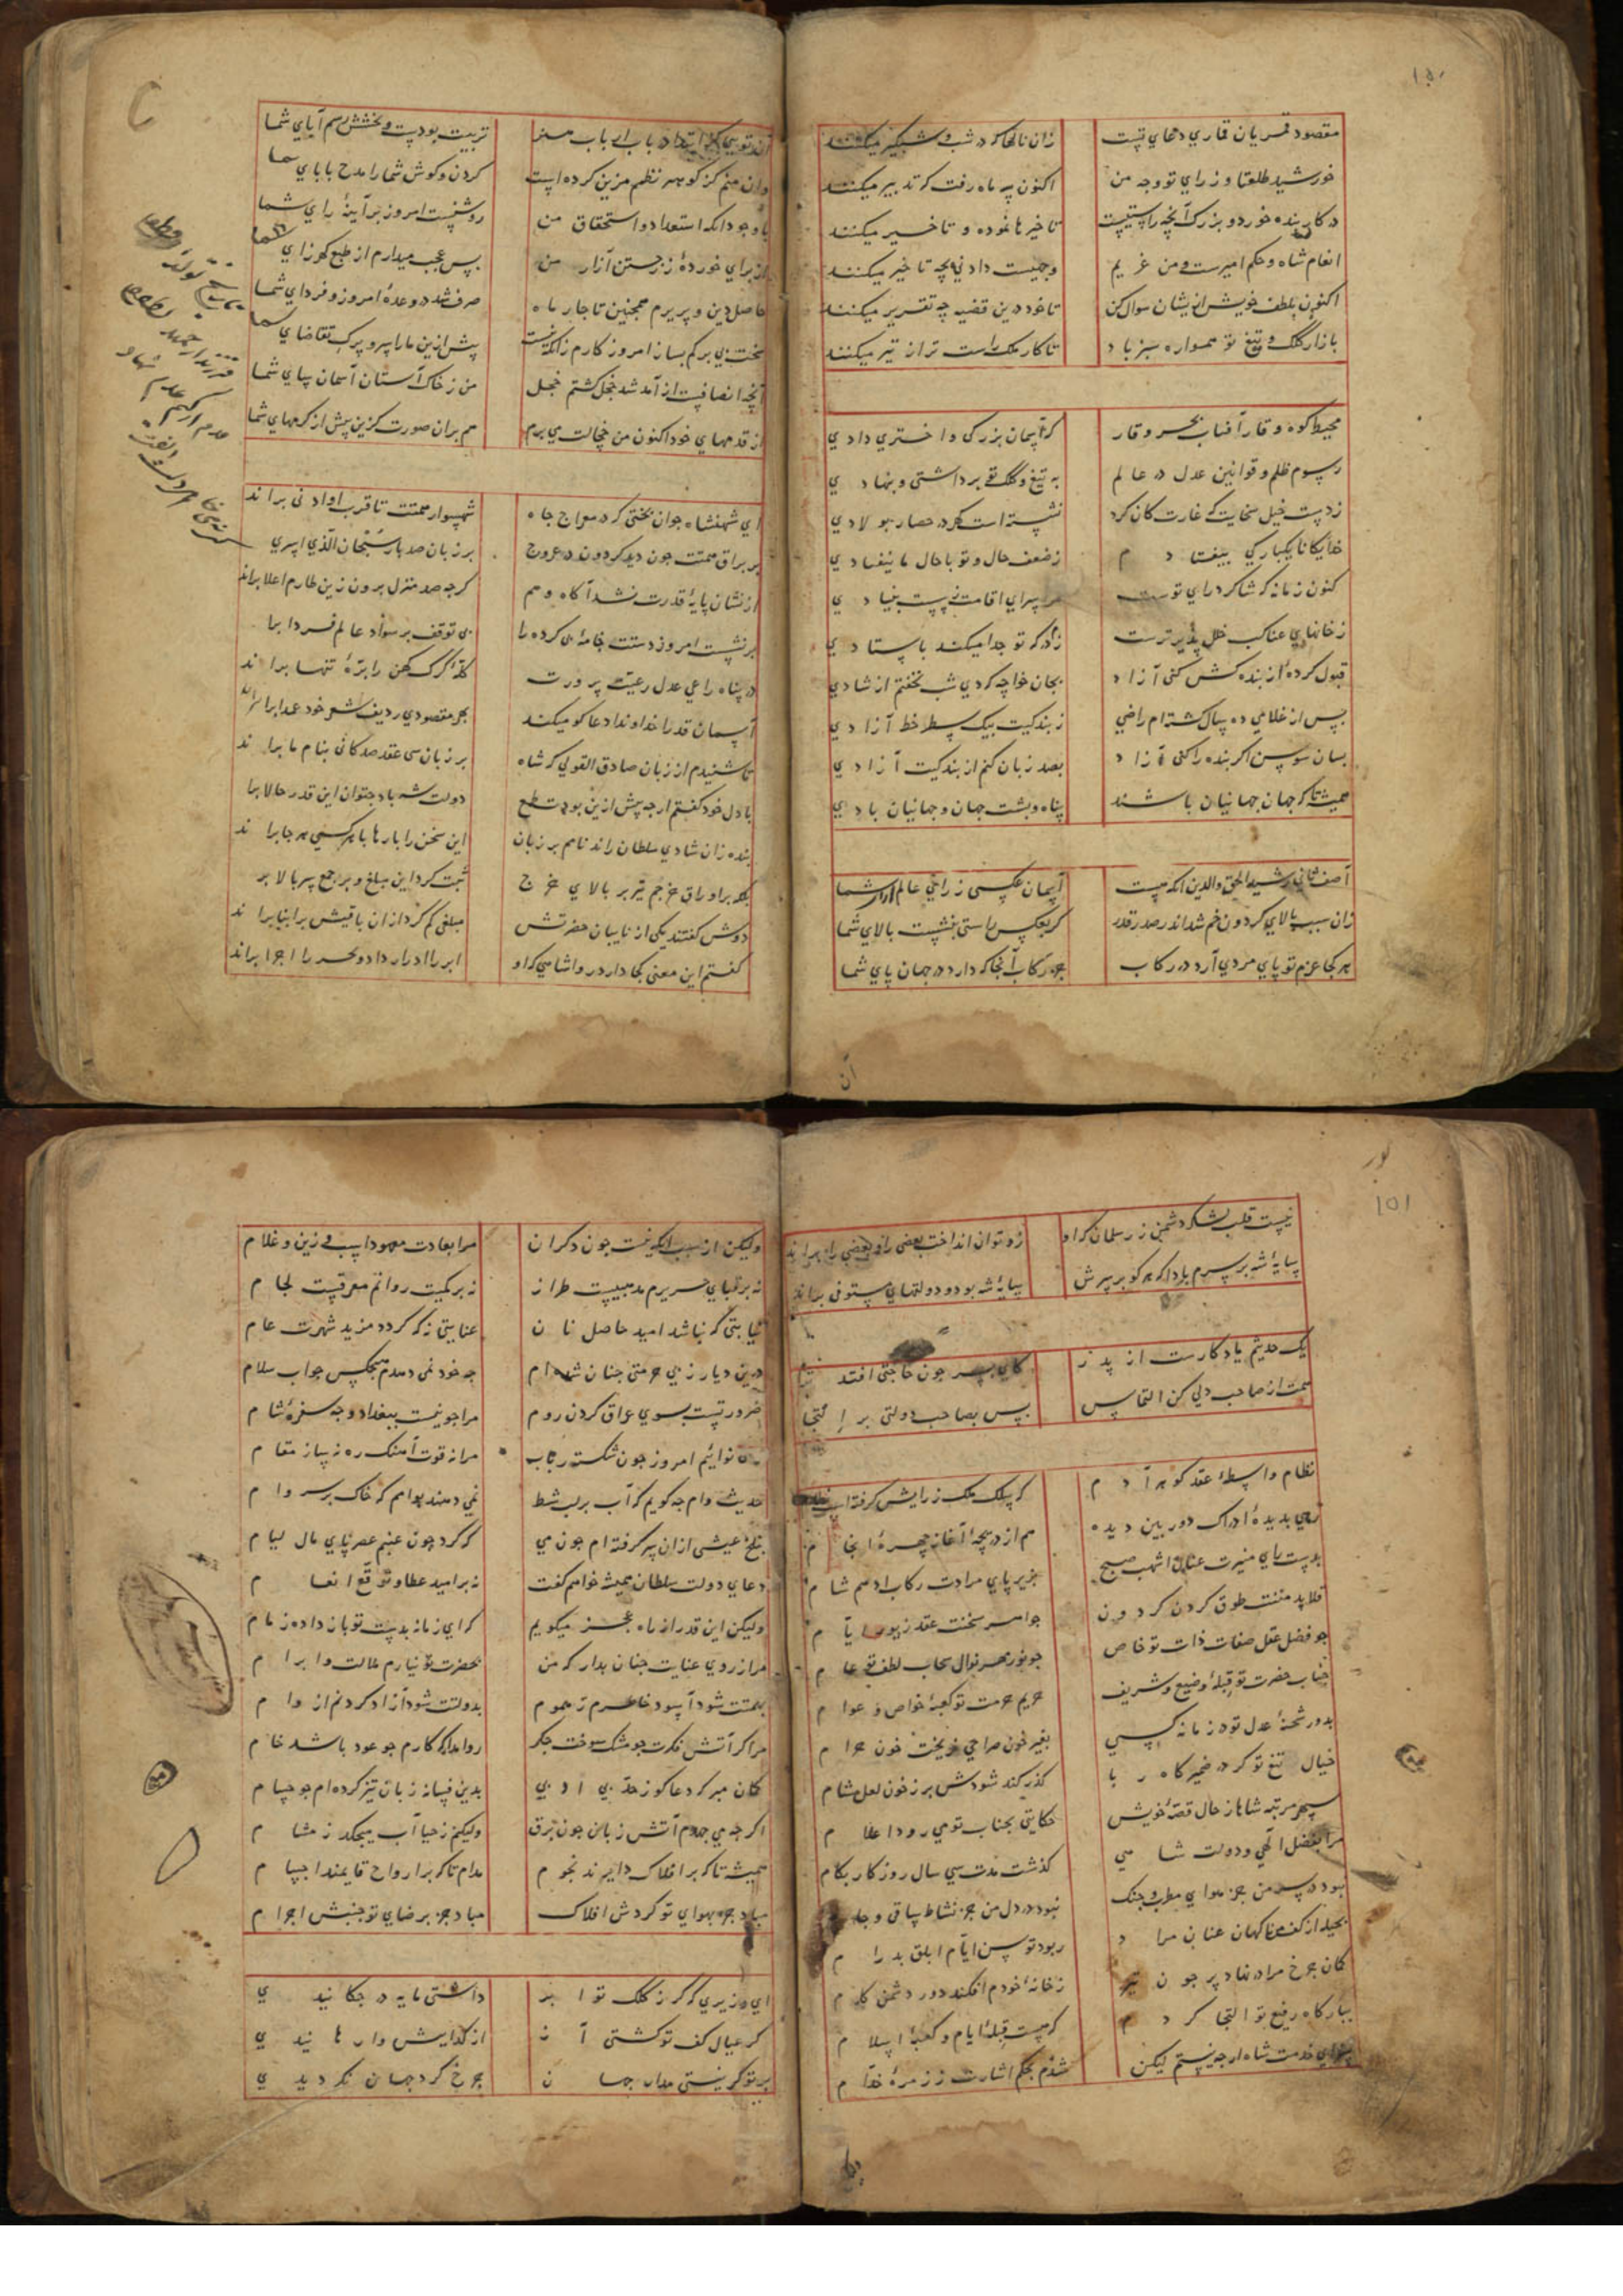 ۱۵۰
مقصود قمریان قماری دعای تست زان نالها که در شب و شبگیر میکنند
خورشید طلعتا و ز رای تو وجه من اکنون به ماه رفت که تدبیر میکنند
در کار بنده خورد و بزرگ آنچه راستیست تاخیرها نموده و تاخیر میکنند
انعام شاه و حکم امیرست و من غریم وجهیست دادنی بچه تاخیر میکنند
اکنون بلطف خویش ازیشان سوال کن تا خود درین قضیه چه تقریر میکنند
بازار کلک و تیغ تو همواره سبز باد تا کار ملک راست تر از تیر میکنند
محیط کوه وقار آفتاب بحر وقار که آسمان بزرگی و اختری دادی
رسوم ظلم و قوانین عدل در عالم به تیغ و کلک تو برداشتی و بنهادی
ز دست خیل سخایت که غارت کان کرد نشسته است گهر در حصار بولادی
خدایکانا یکبارکی بیفتادم ز ضعف حال و تو با حال ما نیفتادی
کنون زمانه که شاکرد رای تو است سرای اقامت نیست بنیادی
ز خانهای عناکب خلل پذیرترست
قبول کرده از بنده کش کنی آزاد بجان خواجه که دی شب نخفتم از شادی
پس از غلامی ده سال گشته‌ام راضی ز بندگیت بیک سطر خط آزادی
بسان سوسن اگر بنده را کنی آزاد بصد زبان کنم از بندگیت آزادی
همیشه تا که جهان جهانیان باشند پناه و پشت جهان و جهانیان بادی
آصف ثانی رشید الحق والدین آنکه نیست آسمان عکسی ز رای عالم آرای شما
زان سبب بالای گردون خم شد اندر صدر قدر کر بعکس راستی بنشست بالای شما
هر کجا عزم تو پای مردی آرد در رکاب جز رکاب آنجا که دارد در جهان پای شما
آن
آن تویی کز ابتدا در باب ارباب هنر تربیت بودست و بخشش رسم آبای شما
وان منم کز گوهر نظم مزین کرده است کردن و کوش شما را مدح بابای شما
با وجود آنکه استعداد و استحقاق من روشنست امروز بر آیینهٔ رای شما
از برای خوردهٔ زر جستن آزار من بس عجب میدارم از طبع کهرزای شما
حاصل دین و پریرم همچنین تا چار ماه صرف شد در وعدهٔ امروز و فردای شما
سخت بی برکم بساز امروز کارم زانکه نیست پیش ازین ما را سر و برک تقاضای شما
آنچه انصافست از آمد شد خجل گشتم خجل من ز خاک آستان آسمان سای شما
از قدمهای خود اکنون من خجالت می برم هم بران صورت کزین پیش از کرمهای شما
ای شهنشاه جوان بختی که در معراج جاه شهسوار همتت تا قرب او ادنی براند
بر براق همتت چون دید کردون در عروج بر زبان صد بار سبحان الذی اسری
از نشان پایهٔ قدرت نشد آگاه وهم کرچه صد منزل برون زین طارم اعلا براند
بر نشست امروز دستت خامهٔ بی توقف بر سواد عالم فردا براند
در پناه راعی عدل رعیت پرورت کلهٔ گرگ کهن را برهٔ تنها براند
آسمان قدرا خداوندا دعاگو میکند بهر مقصودی ردیف شعر خود عمدا براند
تا شنیدم از زبان صادق القولی که شاه بر زبان سی عقد صدکانی بنام ما براند
با دل خود گفتم ارچه پیش ازین بودت طمع دولت شه باد بتوان این قدر حالا براند
بنده زان شادی سلطان راند نامم بر زبان این سخن را بارها با هر کسی هر جا براند
ثبت کرد این مبلغ و
دوش گفتند یکی از نایبان حضرتش مبلغی کم کرد ازان باقیش
گفتم این معنی کجا دارد روا شاهی که او ابر را ادرار داد و بحر را اجرا براند
۱۵۱
نیست قلب لشکر دشمن ز زر سلمان که او زو توان انداخت بعضی را و بعضی را براند
سایهٔ شه بر سرم بادا که هر کو بر سرش سایهٔ شه بود دولتهای مستوفی براند
یک حدیثم یادکارست از پدر کای پسر چون حاجتی افتد ترا
همت از صاحب دلی کن التماس پس بصاحب دولتی بر التجا
نظام واسطهٔ عقد گوهر آدم که سلک ملک ز رایش گرفته است نظام
زهی بدیدهٔ ادراک دوربین دیده هم از دریچهٔ آغاز چهرهٔ انجام
بدست رای منیرت عنان اشهب صبح بزیر پای مرادت رکاب ادهم شام
قلاید مننت طوق گردن گردون جواهر سخنت عقد زیور ایام
چو فضل عقل صفات ذات تو خاص چو نور مهر نوال سحاب لطف تو عام
جناب حضرت تو قبلهٔ وضیع و شریف حریم حرمت تو کعبهٔ خواص و عوام
بدور شحنهٔ عدل تو در زمانه کسی بغیر خون صراحی نریخت خون حرام
خیال تیغ تو گر در ضمیر گذر کند شودش بر ز خون لعل مشام
سپهر مرتبه شاها ز حال قصهٔ خویش حکایتی بجناب تو می رود اعلام
مرا بفضل الهی و دولت شاهی گذشت مدت سی سال روزگار بکام
نبود در سر من جز هوای مطرب و چنگ نبود در دل من جز نشاط ساقی و جام
بحیله از کف من ناکهان عنان مراد ربود توسن ایام ابلق بدرام
کمان چرخ مرا در نهاد بر چون تیر ز خانهٔ خودم افکند دور دشمن کام
ببارگاه رفیع تو التجا کردم که هست قبلهٔ ایام و کعبهٔ اسلام
سزای خدمت شاه ارچه نیستم لیکن شدم بحکم اشارت ز زمرهٔ خدام
ولیکن از سبب آنکه نیست چون دگران مرا بعادت معهود اسب و زین و غلام
نه بر قبای حریرم مذهبیست طراز نه بر کمیت روانم معرقیست لجام
عنایتی نه که گردد مزید شهرت عام
درین دیار ز بی حرمتی چنان شده‌ام که خود نمی دهدم هیچکس جواب سلام
ضرورتست بسوی عراق کردن روم مرا چو نیست ببغداد وجه سفرهٔ شام
نوائیم امروز چون شکسته رباب مرا نه قوت آهنگ ره نه ساز مقام
حدیث وام چه گویم که آب بر لب شط نمی دهند بوامم که خاک بر سر وام
بتلخ عیشی ازان سر گرفته‌ام چون می که گرد چون عنبم عصر پای مال لیام
دعای دولت سلطان همیشه خواهم گفت نه بر امید عطا و توقع انعام
ولیکن این قدر از راه عجز میگویم که ای زمانه بدست تو باز داده زمام
مرا ز روی عنایت چنان بدار که من بحضرت تو نیارم ملالت و ابرام
بهمتت شود آسوده خاطرم ز هموم بدولتت شود آزاد گردنم از وام
مرا که آتش فکرت چو مشک سوخت جگر روا مدار که کارم چو عود باشد خام
گمان مبر که دعاگو ز حد بی ادبی بدین فسانه زبان تیز کرده‌ام چو حسام
اگرچه می جهدم آتش از زبان چون برق ولیکنم ز حیا آب میچکد ز مشام
همیشه تا که بر افلاک دایرند نجوم مدام تا که بر ارواح قایمند اجسام
مباد جز بهوای تو گردش افلاک مباد جز برضای تو جنبش اجرام
ای وزیری که گر ز کلک تو ابر داشتی مایه در چکانیدی
گر عیال کف تو گشتی آز از کدایش وارهانیدی
بر تو گر نیستی مدار جهان چرخ کرد جهان نکردیدی